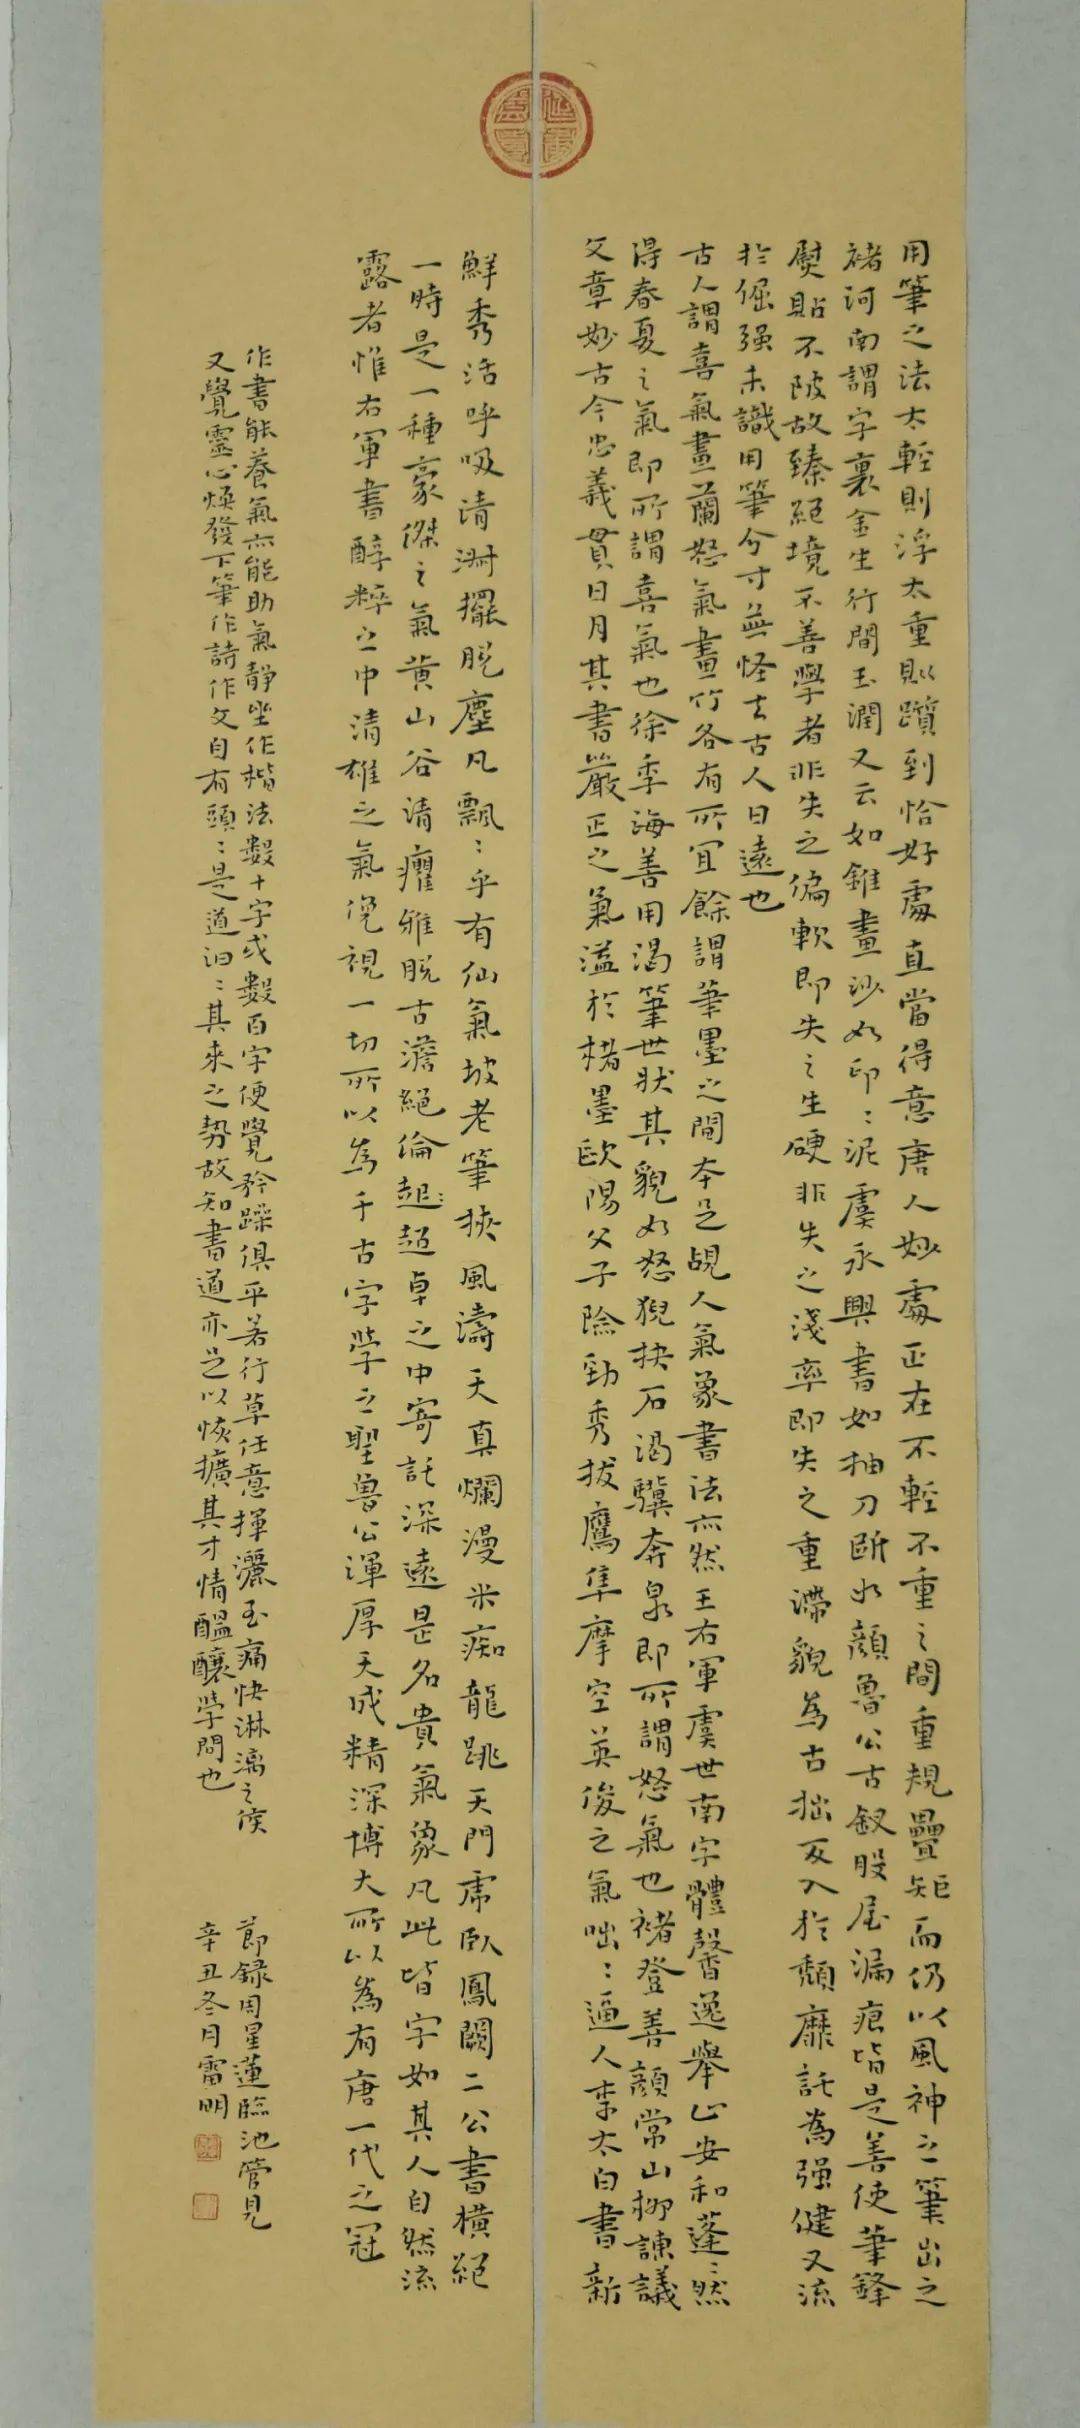 用筆之法太輕則浮太重則躓到恰好處直當得意唐人妙處正在不輕不重之間重規疊矩而仍以風神之筆出之
褚河南謂字裏金生行間玉潤又云如錐畫沙如印〻泥虞永興書如抽刀斷水顏魯公古釵股屋漏痕皆是善使筆鋒
熨貼不陂故臻絕境不善學者非失之偏軟即失之生硬非失之淺率即失之重滯貌為古拙反入於頹靡託為强健又流
於倔强未識用筆分寸無怪去古人日遠也
古人謂喜氣畫蘭怒氣畫竹各有所宜餘謂筆墨之間本足覘人氣象書法亦然王右軍虞世南字體馨逸舉止安和蓬〻然
得春夏之氣即所謂喜氣也徐季海善用渴筆世狀其貌如怒猊抉石渴驥奔泉即所謂怒氣也褚登善顏常山柳諫議
文章妙古今忠義貫日月其書嚴正之氣溢於楮墨歐陽父子險勁秀拔鷹隼摩空英俊之氣咄〻逼人李太白書新
鮮秀活呼吸清淑擺脫塵凡飄〻乎有仙氣坡老筆挾風濤天真爛漫米痴龍跳天門虎臥鳳闕二公書橫絕
一時是一種豪傑之氣黄山谷清癯雅脫古澹絕倫超〻超卓之中寄託深遠是名貴氣象凡此皆字如其人自然流
露者惟右軍書醇粹之中清雄之氣俛視一切所以為千古字學之聖魯公渾厚天成精深博大所以為有唐一代之冠
作書能養氣亦能助氣靜坐作楷法數十字或數百字便覺矜躁俱平若行草任意揮灑至痛快淋漓之候
又覺靈心煥發下筆作詩作文自有頭〻是道汩〻其來之勢故知書道亦足以恢擴其才情醞釀學問也
節録周星蓮臨池管見
辛丑冬月雷明